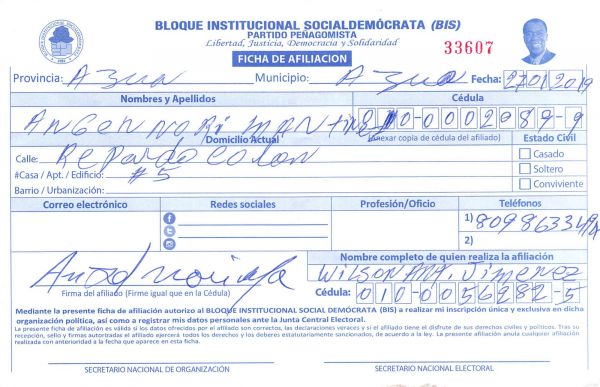 BLOQUE INSTITUCIONAL SOCIALDEMÓCRATA (BIS)
PARTIDO PEÑAGOMISTA
Libertad, Justicia, Democracia y Solidaridad
33607
FICHA DE AFILIACION
Provincia: Azua Municipio: Azua Fecha:
Nombres y Apellidos Cédula
(Anexar copia de cédula del afiliado)
Domicilio Actual Estado Civil
Calle: Repardo Colon
Casado
#Casa / Apt. / Edificio: #5
Soltero
Barrio / Urbanización:
Conviviente
Correo electrónico Redes sociales Profesión/Oficio Teléfonos
1)
2)
Nombre completo de quien realiza la afiliación
Wilson Jimenez
Firma del afiliado (Firme igual que en la Cédula)
Cédula: 010-0056282-5
Mediante la presente ficha de afiliación autorizo al BLOQUE INSTITUCIONAL SOCIAL DEMÓCRATA (BIS) a realizar mi inscripción única y exclusiva en dicha
organización política, así como a registrar mis datos personales ante la Junta Central Electoral.
La presente ficha de afiliación es válida si los datos ofrecidos por el afiliado son correctos, las declaraciones veraces y si el afiliado tiene el disfrute de sus derechos civiles y políticos. Tras su
recepción, sello y firmas autorizadas el afiliado ejercerá todos los derechos y los deberes estatutariamente sancionados, de acuerdo a la ley. La presente afiliación anula cualquier afiliación
realizada con anterioridad a la fecha que aparece en esta ficha.
SECRETARIO NACIONAL DE ORGANIZACIÓN SECRETARIO NACIONAL ELECTORAL